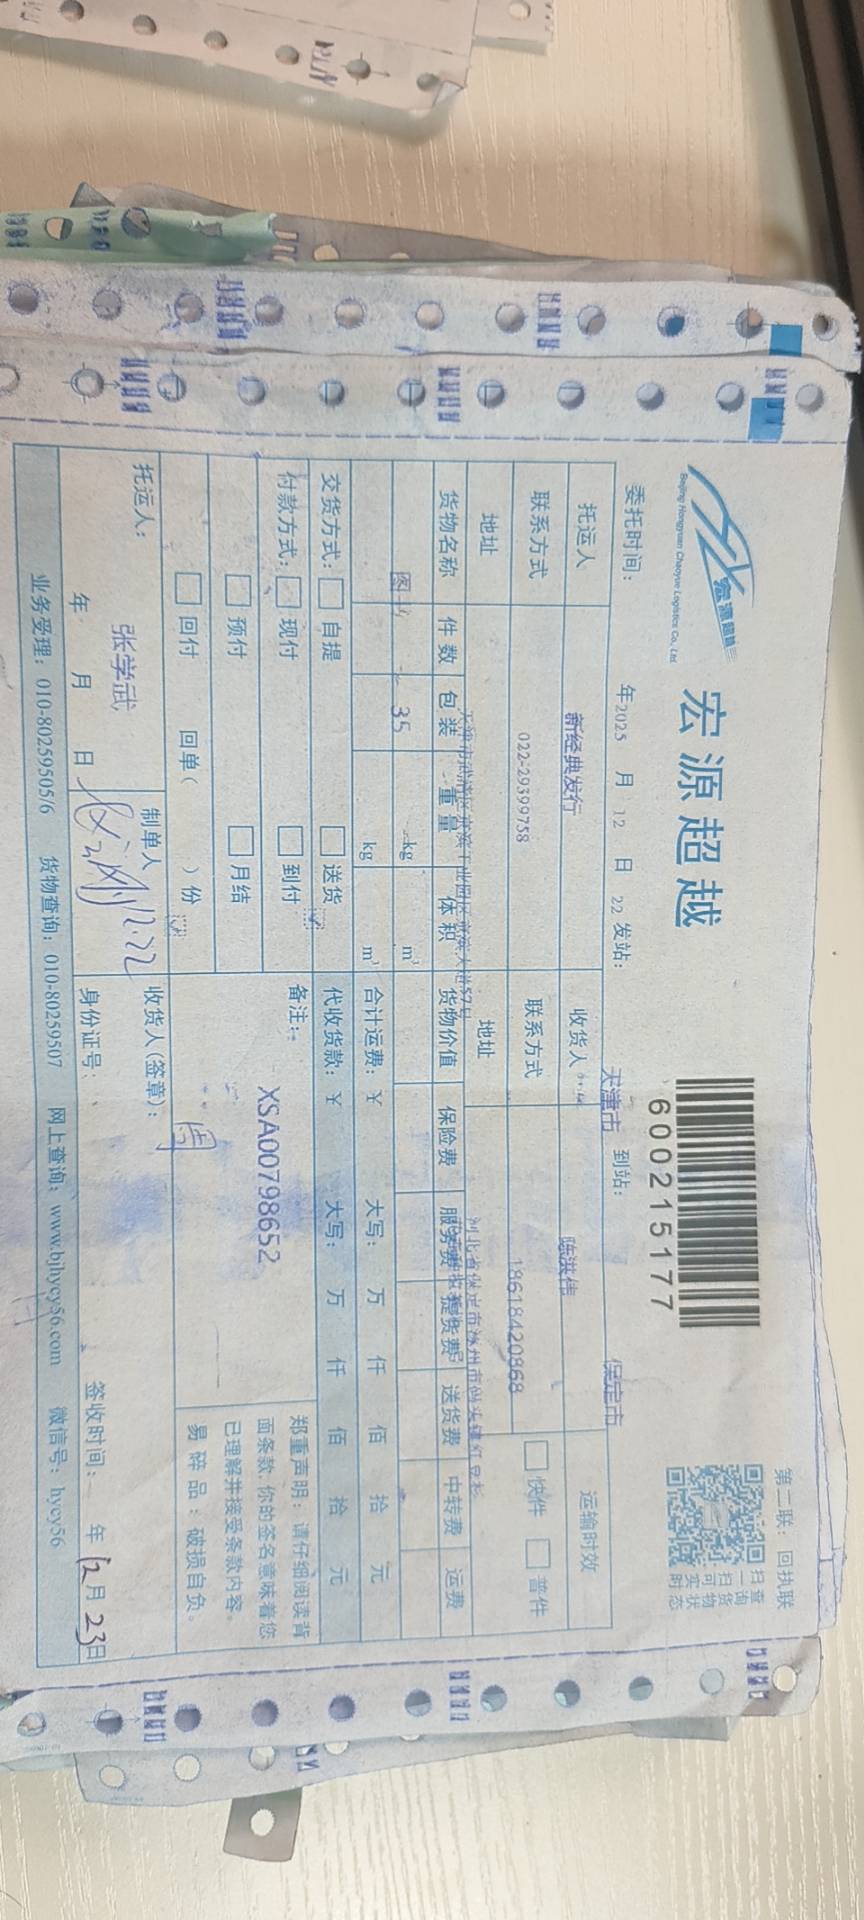 宏源超越
Beijing Hongyuan Chaoyue Logistics Co., Ltd.
宏源超越
600215177
第二联：回执联
扫一扫可实时
查询货物状态
委托时间： 年2025 月 12 日 22 发站： 天津市 到站： 保定市
托运人 新经典发行 收货人 陈洪伟 运输时效
联系方式 022-29399758 联系方式 18618420868 快件 普件
地址 天津市武清区京滨工业园区京滨大道57号 地址 河北省保定市涿州市
货物名称 件数 包装 重量 体积 货物价值 保险费 服务费 提货费 送货费 中转费 运费
图书 35 kg m³
kg m³ 合计运费：￥ 大写： 万 仟 佰 拾 元
交货方式： 自提 送货 代收货款：￥ 大写： 万 仟 佰 拾 元
付款方式： 现付 到付 备注：
预付 月结 XSA00798652
回付 回单（ ）份
郑重声明：请仔细阅读背
面条款，你的签名意味着您
已理解并接受条款内容。
易碎品：破损自负。
托运人： 张学武 制单人 12.22 收货人(签章)： 周
年 月 日 身份证号： 签收时间： 年 12月 23日
业务受理：010-80259505/6 货物查询：010-80259507 网上查询：www.bjhycy56.com 微信号：hycy56